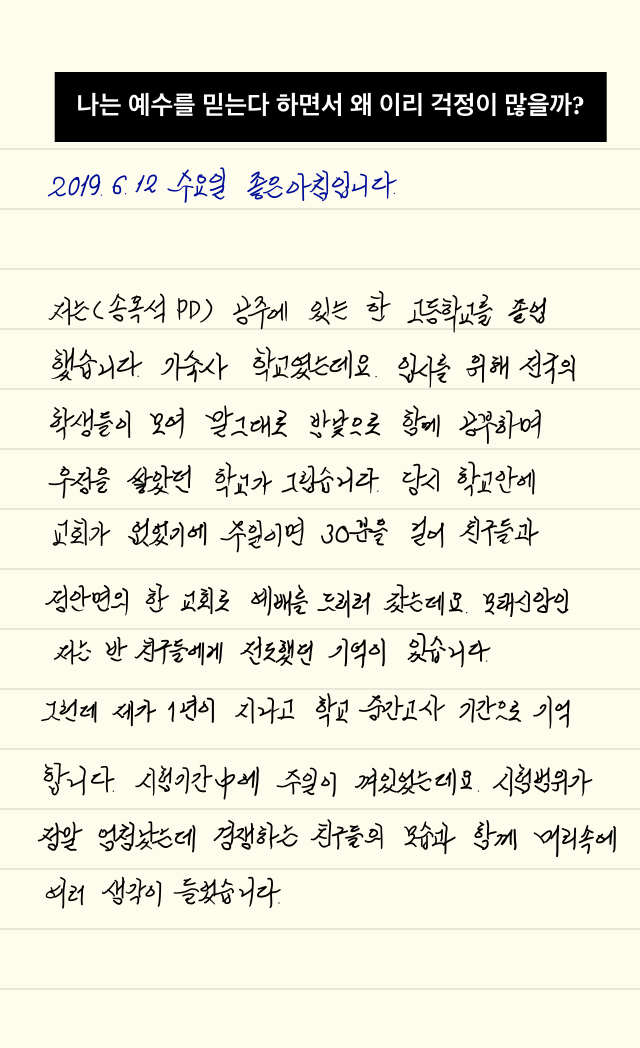 나는 예수를 믿는다 하면서 왜 이리 걱정이 많을까?
2019. 6. 12 수요일 좋은아침입니다.
저는(송옥석 PD) 공주에 있는 한 고등학교를 졸업
했습니다. 기숙사 학교였는데요. 입시를 위해 전국의
학생들이 모여 말그대로 밤낮으로 함께 공부하며
우정을 쌓았던 학교가 그립습니다. 당시 학교안에
교회가 없었기에 주일이면 30분을 걸어 친구들과
정안면의 한 교회로 예배를 드리러 갔는데요. 모태신앙인
저는 반 친구들에게 전도했던 기억이 있습니다.
그런데 제가 1년이 지나고 학교 중간고사 기간으로 기억
합니다. 시험기간中에 주일이 껴있었는데요. 시험범위가
정말 엄청났는데 경쟁하는 친구들의 모습과 함께 머리속에
여러 생각이 들었습니다.